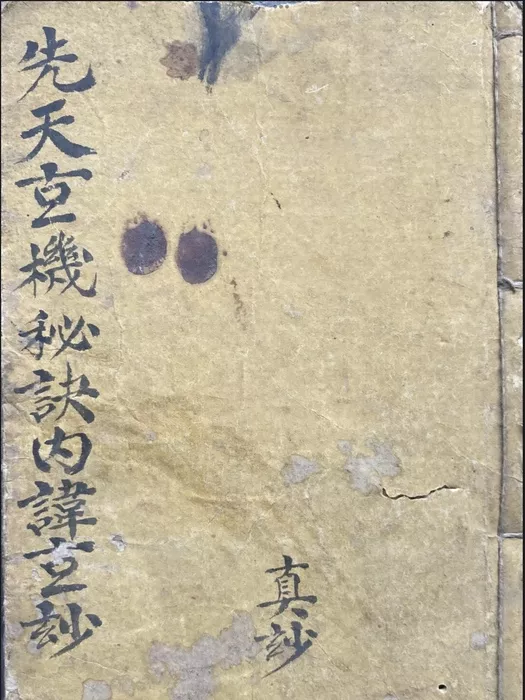 先天玄機秘訣内諱玄玅
真玅